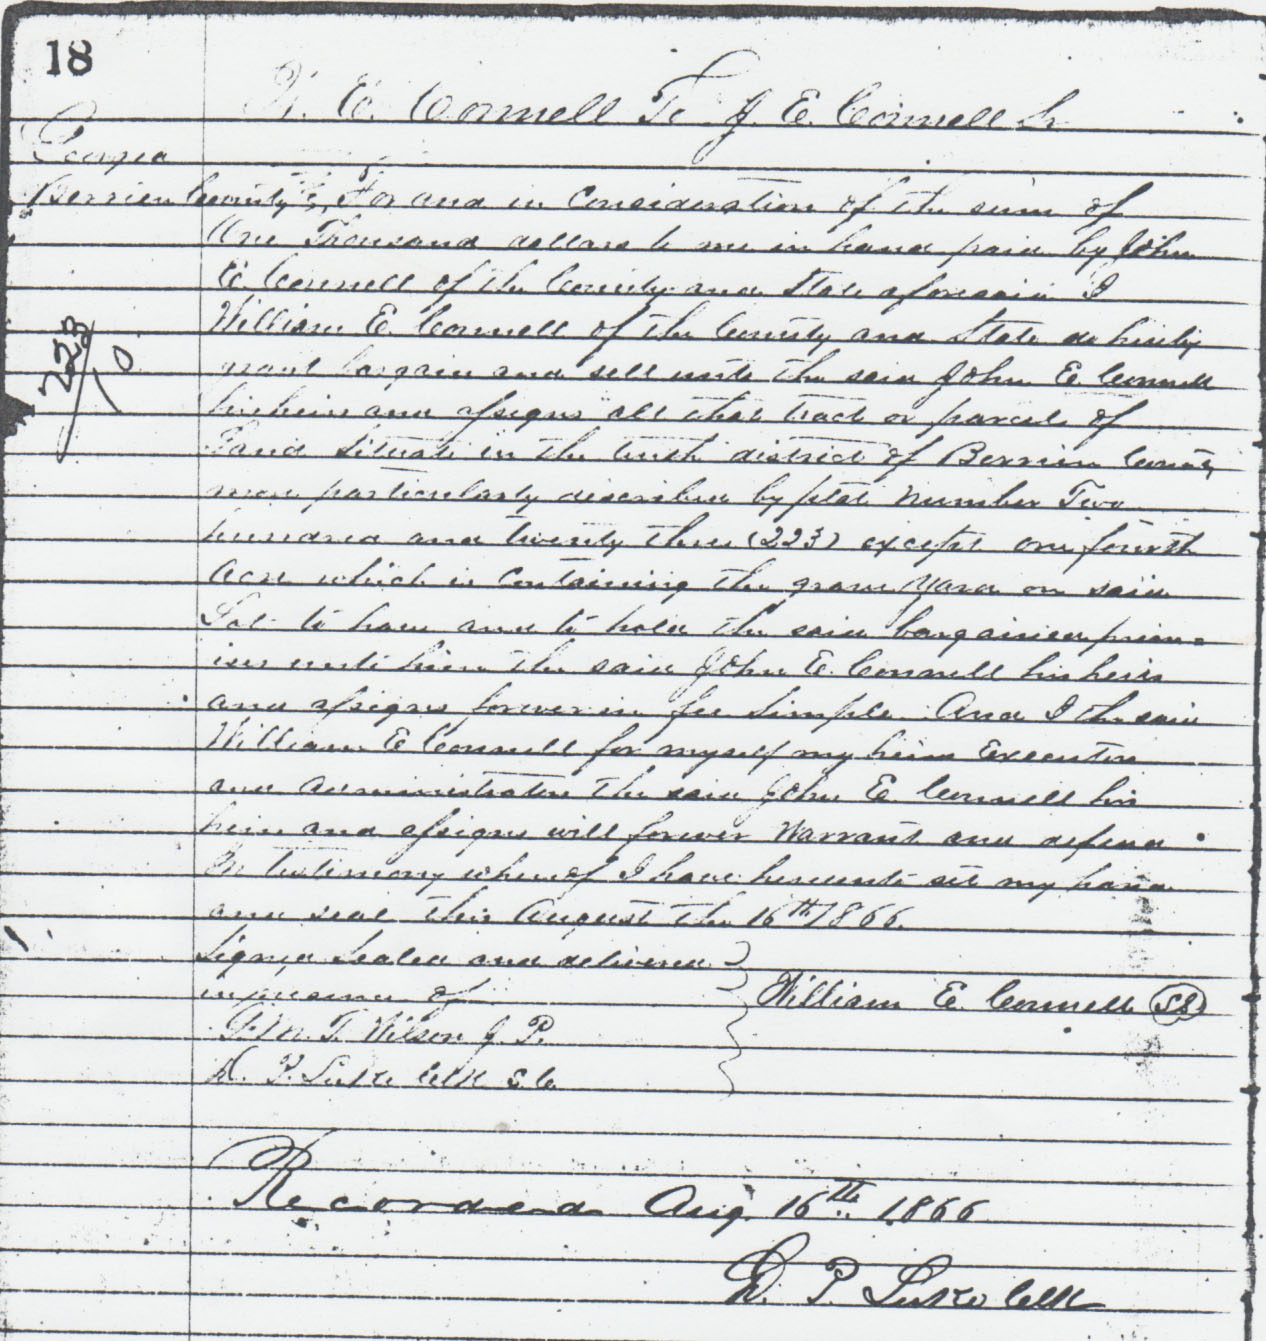 18
W. E. Connell To J. E. Connell Sr
Georgia
Berrien County For and in Consideration of the sum of
One Thousand dollars to me in hand paid by John
E. Connell of the County and State aforesaid I
William E. Connell of the County and State do hereby
grant bargain and sell unto the said John E. Connell
his heirs and assigns all that tract or parcel of
Land Situate in the tenth district of Berrien County
more particularly described by plat Number Two
hundred and twenty three (223) except one fourth
Acre which is Containing the grave Yard on said
Lot to have and to hold the said bargained prem=
ises unto him the said John E. Connell his heirs
and assigns forever in fee Simple. And I the said
William E Connell for myself my heirs Executors
and administrators the said John E. Connell his
heirs and assigns will forever Warrant and defend
In testimony whereof I have hereunto set my hand
and seal this August the 16th 1866.
Signed Sealed and delivered
in presence of
William E. Connell SS
T. M. T. Wilson J. P.
W. P. Luke Clk S. C.
223/10
Recorded Aug. 16th 1866
W. P. Luke Clk